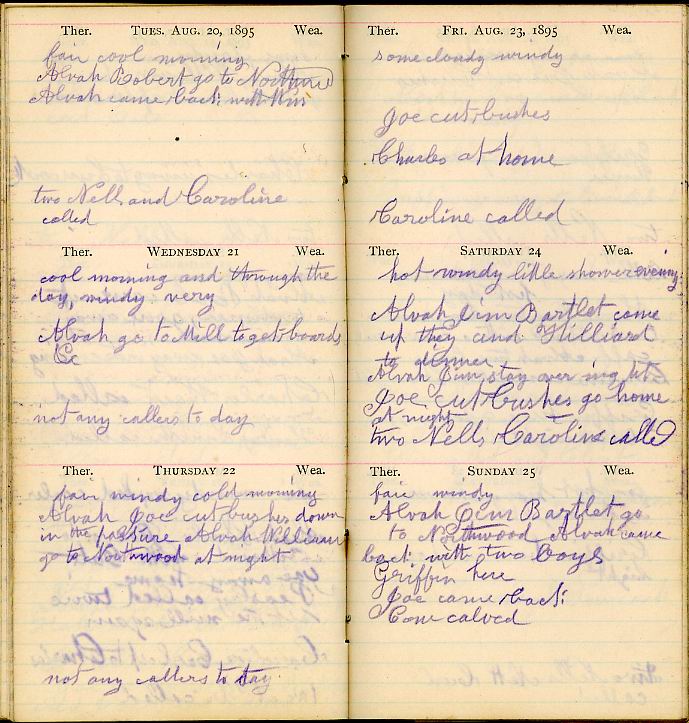 Ther. TUES. AUG. 20, 1895 Wea.
fair cool morning
Alvah Robert go to Northwood
Alvah came back with
two Nells and Caroline
called
Ther. WEDNESDAY 21 Wea.
cool morning and through the
day, windy very
Alvah go to Mill to get boards
&c
not any callers to day
Ther. THURSDAY 22 Wea.
fair windy cold morning
Alvah Joe cut bushes down
in the pasture Alvah William
go to Northwood at night
not any callers to day
Ther. FRI. AUG. 23, 1895 Wea.
some cloudy windy
Joe cut bushes
Charles at home
Caroline called
Ther. SATURDAY 24 Wea.
hot windy little shower evening
Alvah Jim Bartlet come
up they and Hilliard
to dinner
Alvah Jim stay over night
Joe cut bushes go home
at night
two Nells Caroline called
Ther. SUNDAY 25 Wea.
fair windy
Alvah Jim Bartlet go
to Northwood Alvah came
back with two boys
Griffin here
Joe came back
Cow calved